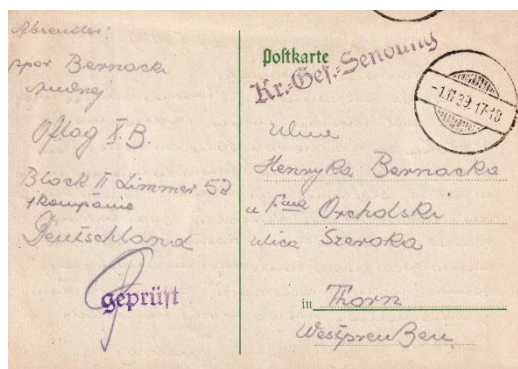 Absender:
ppor Bernacki
Andrzej
Oflag X.B.
Block II Zimmer 52
1 Kompanie
Deutschland
geprüft
Postkarte
Kr.-Gef.-Sendung
-1.11.39.17-18
Henryka Bernacka
u Orcholski
ulica Szeroka
in Thorn
Westpreußen